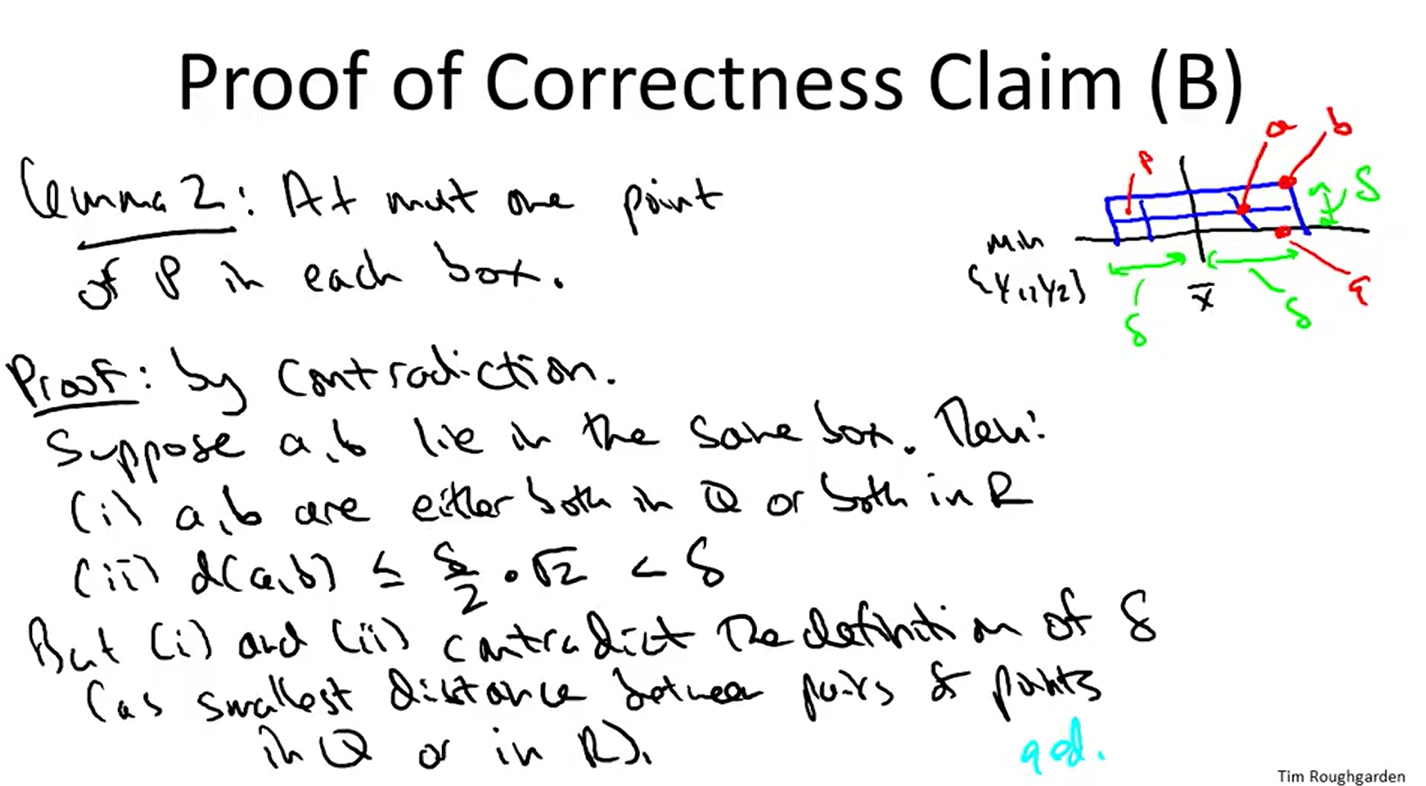 Proof of Correctness Claim (B)
Lemma 2: At most one point
of P in each box.
a
b
P
δ
min
{y1,y2}
x̄
q
δ
δ
Proof: by contradiction.
Suppose a,b lie in the same box. Then:
(i) a,b are either both in Q or both in R
(ii) d(a,b) ≤ δ/2 • √2 < δ
But (i) and (ii) contradict the definition of δ
(as smallest distance between pairs of points
in Q or in R).
qed.
Tim Roughgarden